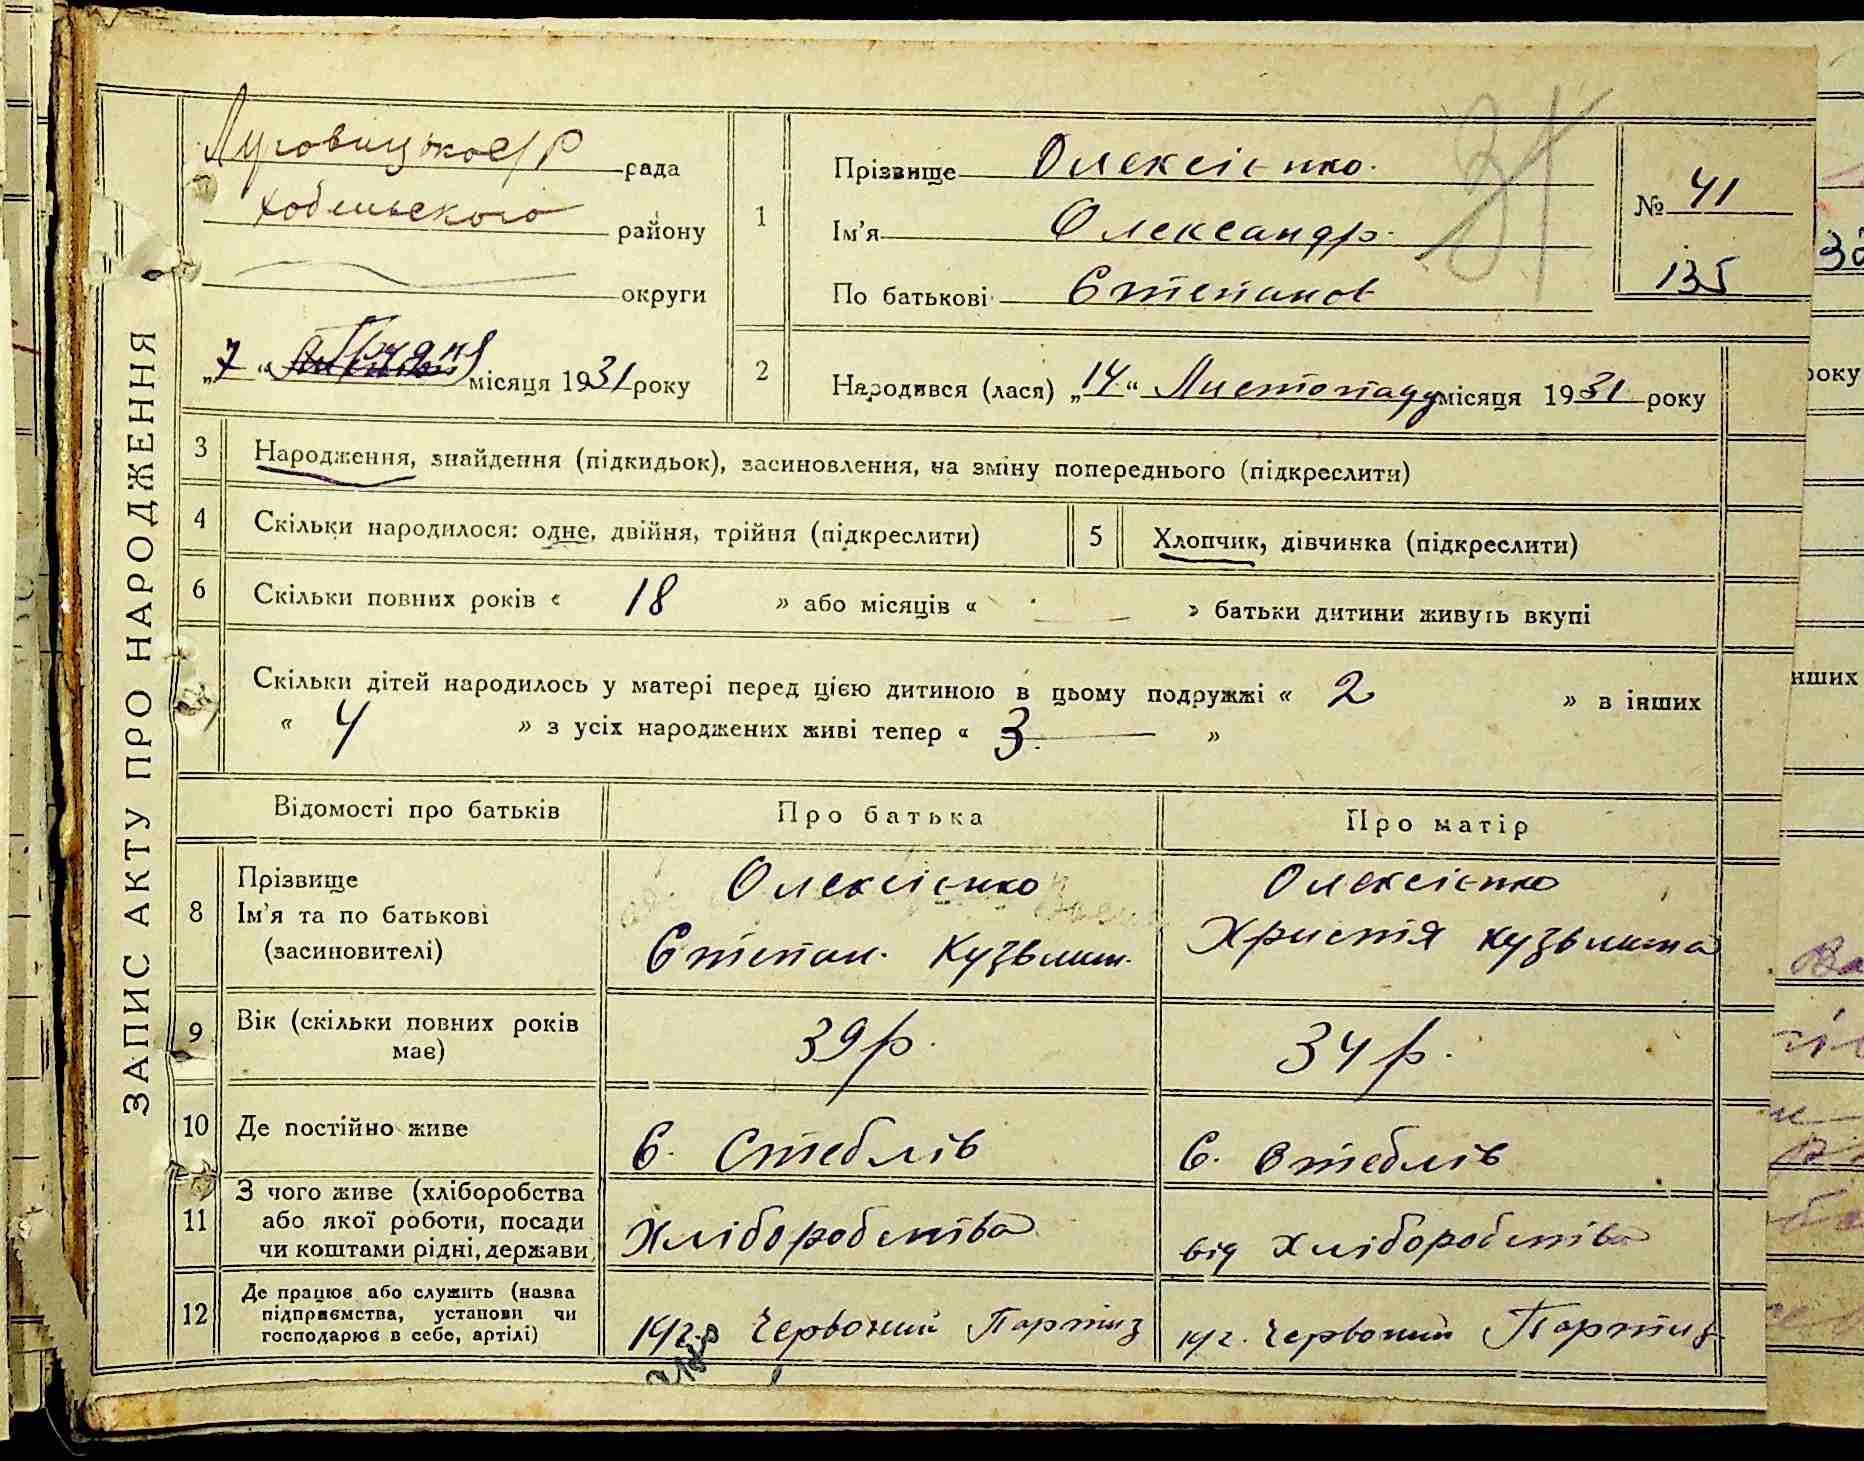 ЗАПИС АКТУ ПРО НАРОДЖЕННЯ
Луговицької с/Р рада
району
округи
„7“ Грудня місяця 1931 року
1
Прізвище Олексієнко.
Ім'я Олександр.
По батькові Степанов
№ 41
135
2
Народився (лася) „14“ Листопаду місяця 1931 року
3 Народження, знайдення (підкидьок), засиновлення, на зміну попереднього (підкреслити)
4 Скільки народилося: одне, двійня, трійня (підкреслити)
5 Хлопчик, дівчинка (підкреслити)
6 Скільки повних років « 18 » або місяців « — » батьки дитини живуть вкупі
Скільки дітей народилось у матері перед цією дитиною в цьому подружжі « 2 » в інших
« 4 » з усіх народжених живі тепер « 3 »
Відомості про батьків
Про батька
Про матір
8
Прізвище
Ім'я та по батькові
(засиновителі)
Олексієнко
Степан. Кузьмич.
Олексієнко
Христя Кузьмина
9
Вік (скільки повних років
має)
39 р.
34 р.
10 Де постійно живе
С. Стеблів
С. Стеблів
11
З чого живе (хліборобства
або якої роботи, посади
чи коштами рідні, держави
Хліборобства
від Хліборобства
12
Де працює або служить (назва
підприємства, установи чи
господарює в себе, артілі)
Червоний Партиз
Червоний Партиз